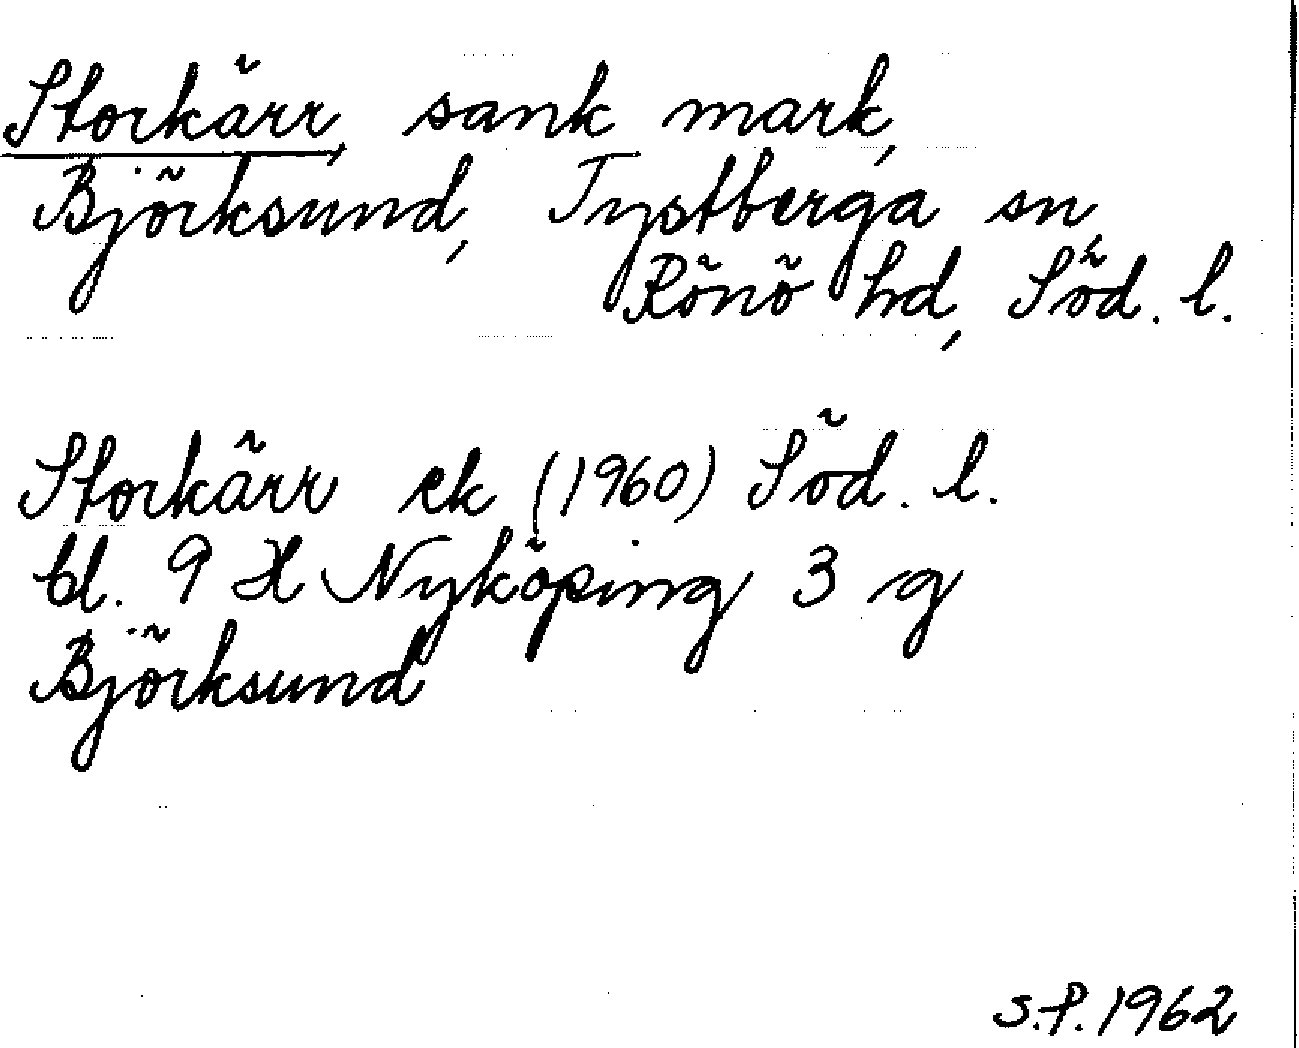 Storkärr, sank mark,
Björksund, Tystberga sn,
Rönö hd, Söd. l.
Storkärr ek (1960) Söd. l.
bl. 9 H Nyköping 3 g
Björksund
S.P. 1962